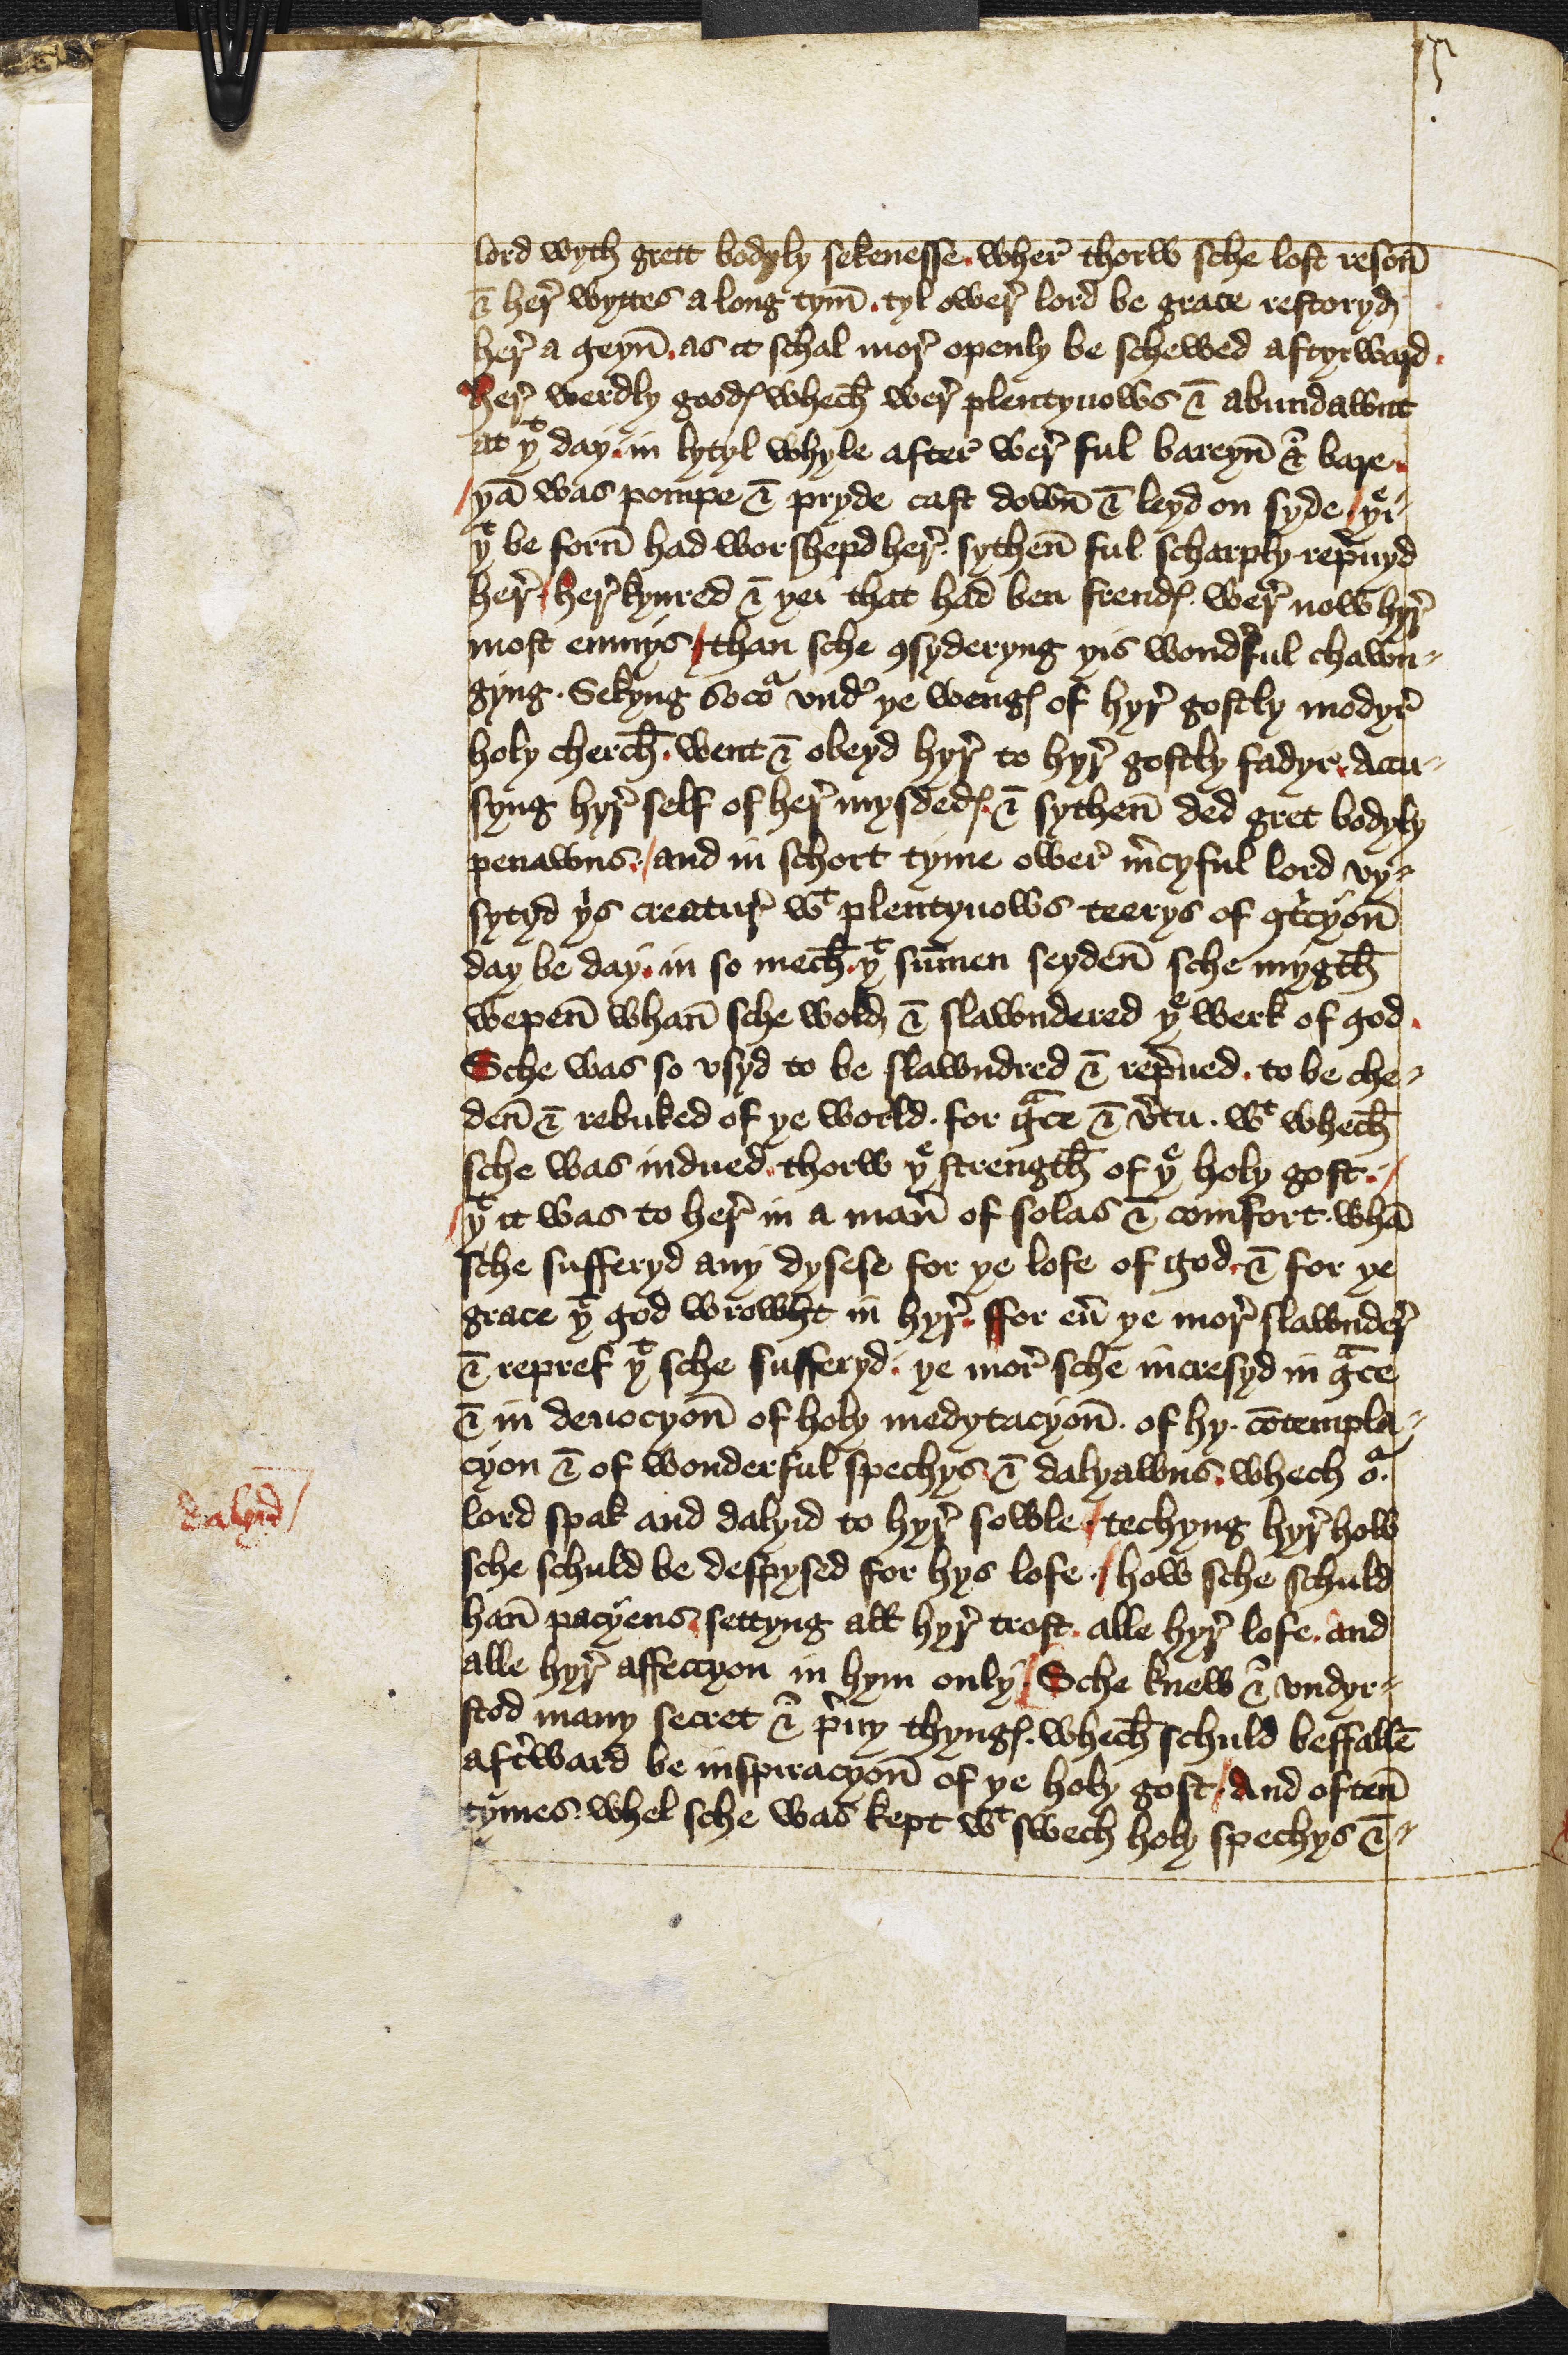 lord wyth grett bodyly sekenesse. wher̃ thorw sche lost resoñ
& her̃ wyttes a long tym̃. tyl ower̃ lord be grace restoryd
her̃ a geyñ. as it schal mor̃ openly be schewed aftyrward.
Her̃ werdly goodꝭ whech̄ wer̃ plentyuows & abundawnt
at yͭ day. in lytyl whyle after̃ wer̃ ful bareyñ & bare.
/yā was pompe & pryde cast dowñ & leyd on syde / yei
yͭ be forñ had worshepd her̃. sytheñ ful scharply repuyd
her̃ / her̃ kynred & yei that had ben frendꝭ. wer̃ now hyr̃
most enmys / than sche ꝯsyderyng yis wondrful chawn-
gyng. Sekyng socoᵃ vndʳ ye wengꝭ of hyr̃ gostly modyr̃
holy cherch̄. went & obeyd hyr̃ to hyr̃ gostly fadyr. Accu-
syng hyr̃ self of her̃ mysdedꝭ. & sytheñ ded gret bodyly
penawns. / and in schort tyme ower̃ m̃cyful lord vy-
sytyd yⁱs creatur̃ wͭ plentyuows teerys of ꝯtⁱcyoñ
day be day. in so mech̄. yͭ sum̄en seydeñ sche mygth̄
wepeñ whañ sche wold & slawndered yᵉ werk of god.
Sche was so vsyd to be slawndred & rep̃ued. to be che-
deñ & rebuked of ye world. for gᵃce & ṽtu. wͭ whech̄
sche was indued. thorw yᵉ strength̄ of yᵉ holy gost. /
/ yͭ it was to her̃ in a mañ of solas & comfort. whā
sche sufferyd any dysese for ye lofe of god. & for ye
grace yͭ god wrowht in hyr̃. ffor eũ ye mor̃ slawnder̃
& repref yͭ sche sufferyd. ye mor̃ sche incresyd in gᵃce
& in deuocyoñ of holy medytacyoñ. of hy. cōtempla-
cyon & of wonderful spechys & dalyawns. whech oᵃ.
lord spak and dalyid to hyr̃ sowle / techyng hyr̃ how
dalyid /
sche schuld be despysed for hys lofe. / how sche schuld
hañ pacyens. settyng all hyr̃ trost. alle hyr̃ lofe. and
alle hyr̃ affeccyon in hym only / Sche knew & vndyr-
stod many secret & pⁱuy thyngꝭ. whech̄ schuld beffallē
aftʳward be inspiracyoñ of ye holy gost / And ofteñ
tymes. whel sche was kept wͭ swech holy spechys & -